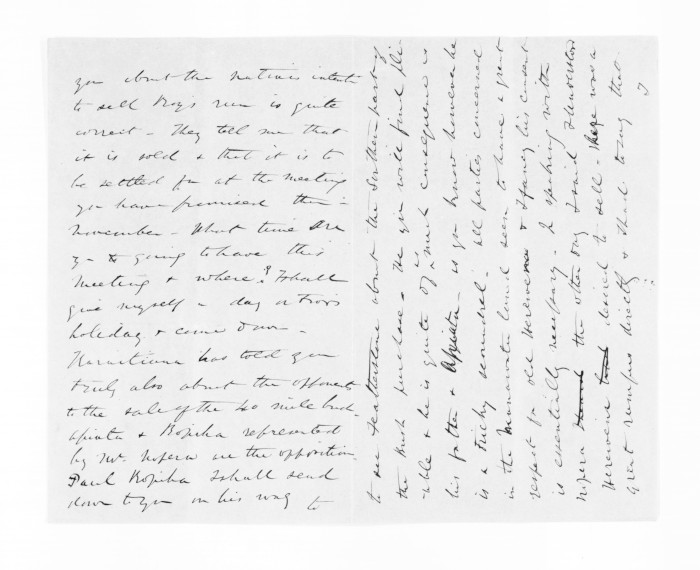 you about the natives intent
to sell Boys run is quite
correct - They tell me that
it is sold & that it is to
be settled for at the meeting
you have promised them in
November - What time are
you going to have this
Meeting & where? I shall
give myself a day or two's
holeday & come down -
Karaitiana has told you
truly also about the opponents
to the sale of the 40 mile bush
Apiata & Ropiha represented
by Mr. Nopera are the opposition.
Paul Ropiha I shall send
down to you on his way to
to see Featherstone about the Southern part of
the Bush purchase. He you will find pli-
able & he is quite of as much consequence as
his father & Apiata - as you know however he
is a tricky scoundrel. All parties concerned
in the Manawatu land seem to have a great
respect for old Hereweni & I fancy his consent
is essentially necessary. In speaking with
Nopera the other day I said I understood
Hereweni desired to sell - there was a
Great rumpus directly & I had to say that
I